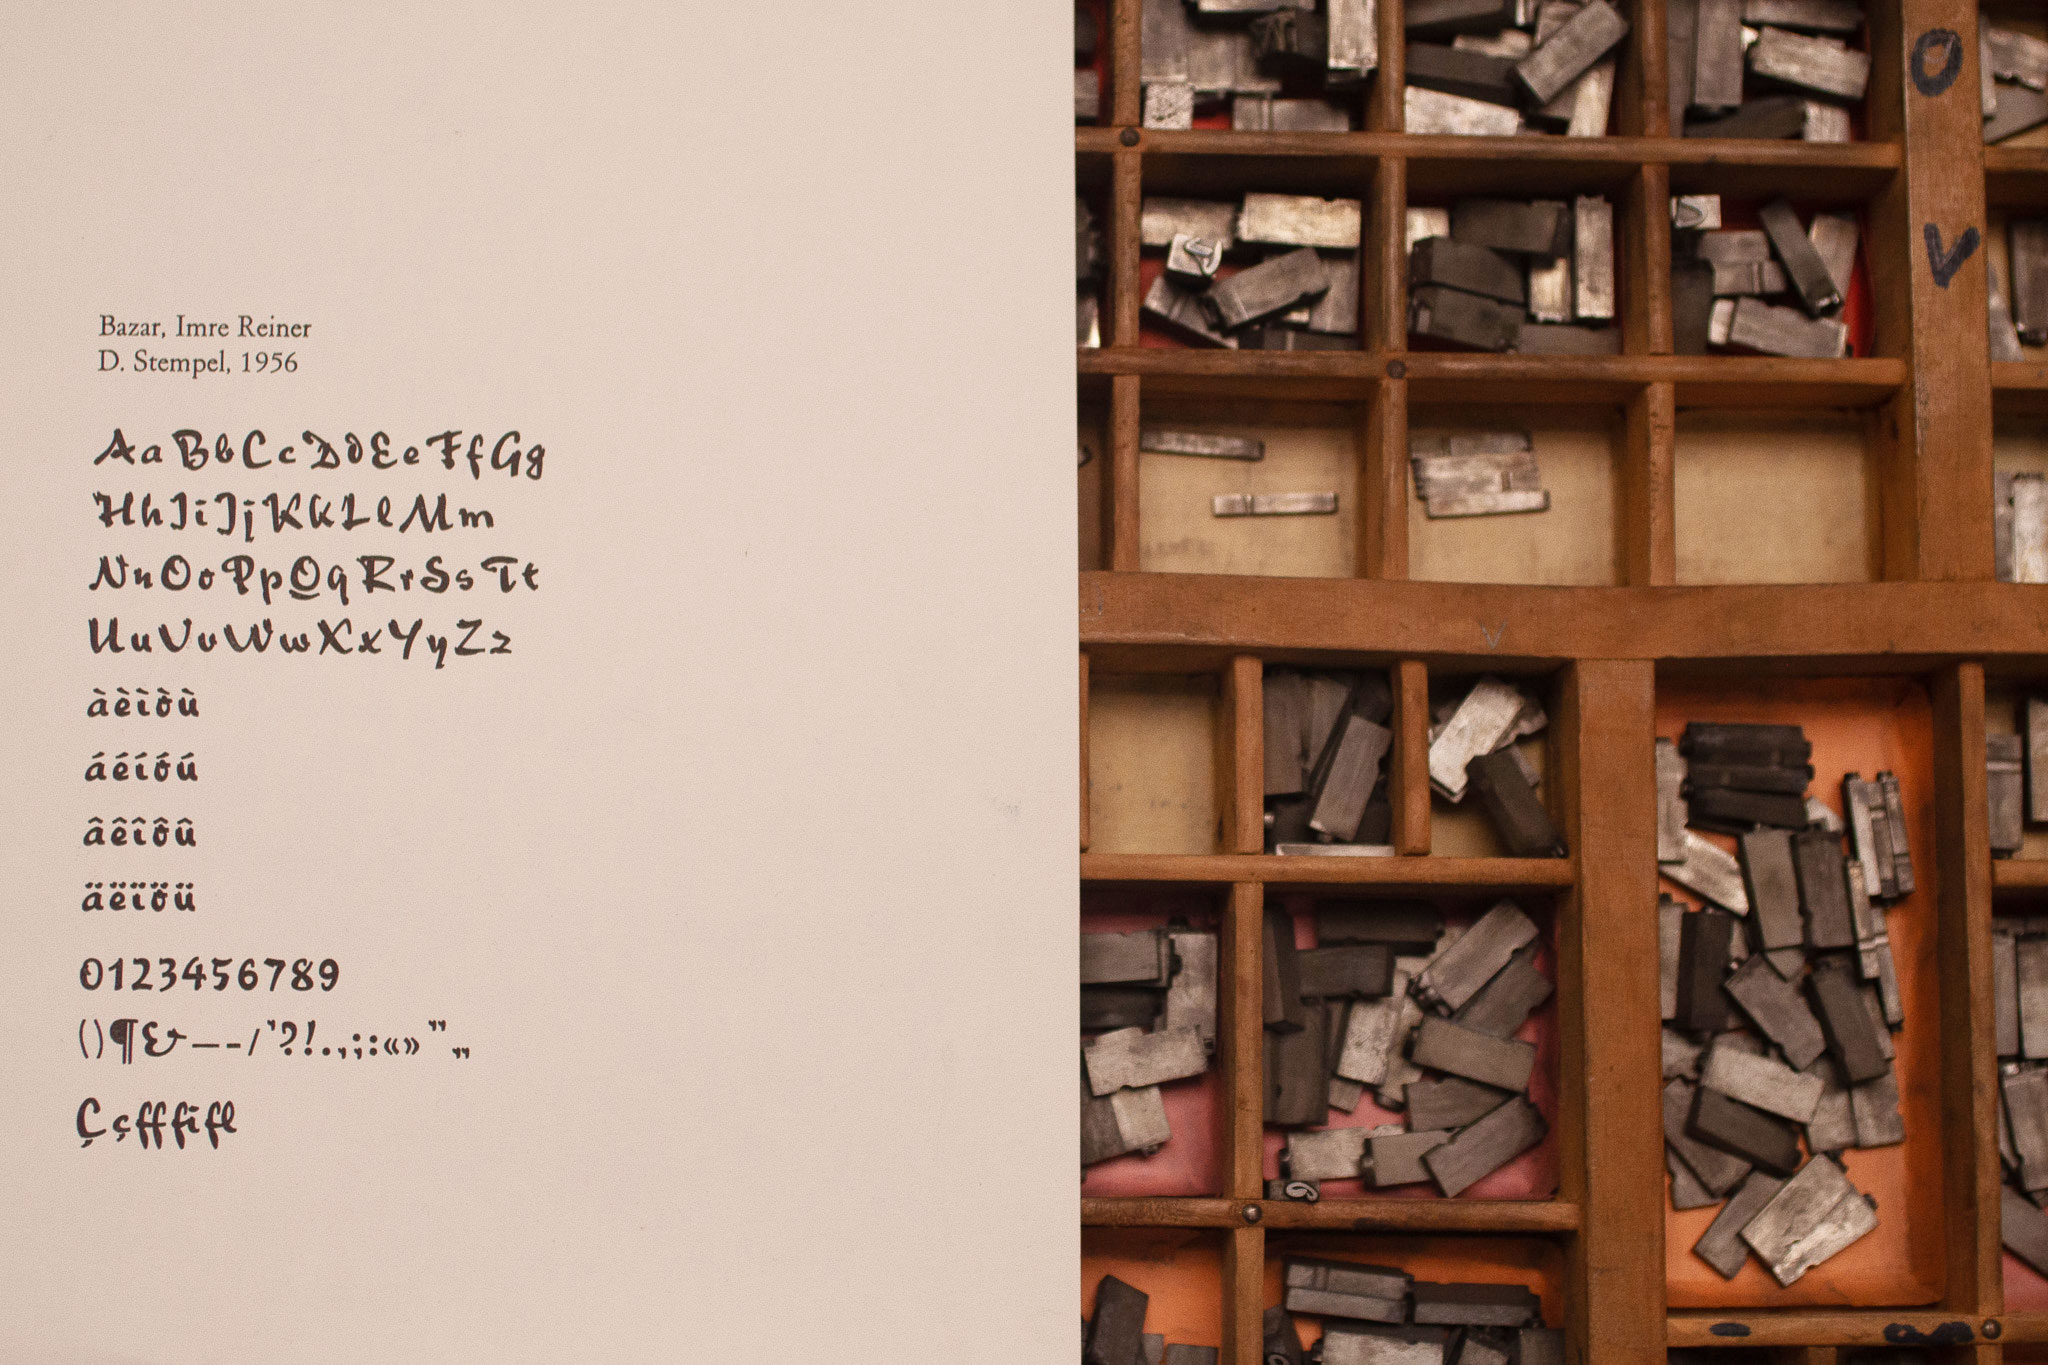 Bazar, Imre Reiner
D. Stempel, 1956
AaBbCcDdEeFfGg
HhIiJjKkLlMm
NnOoPpQqRrSsTt
UuVvWwXxYyZz
àèìòù
áéíóú
âêîôû
äëïöü
0123456789
()¶&—-/'?!.,;:«»”„
Ççfffifl
O
V
V